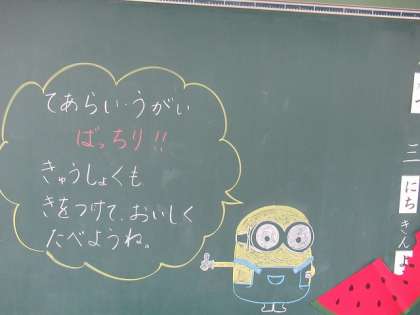 てあらい・うがい
ばっちり!!
きゅうしょくも
きをつけて、おいしく
たべようね。
三
にち
きんよ